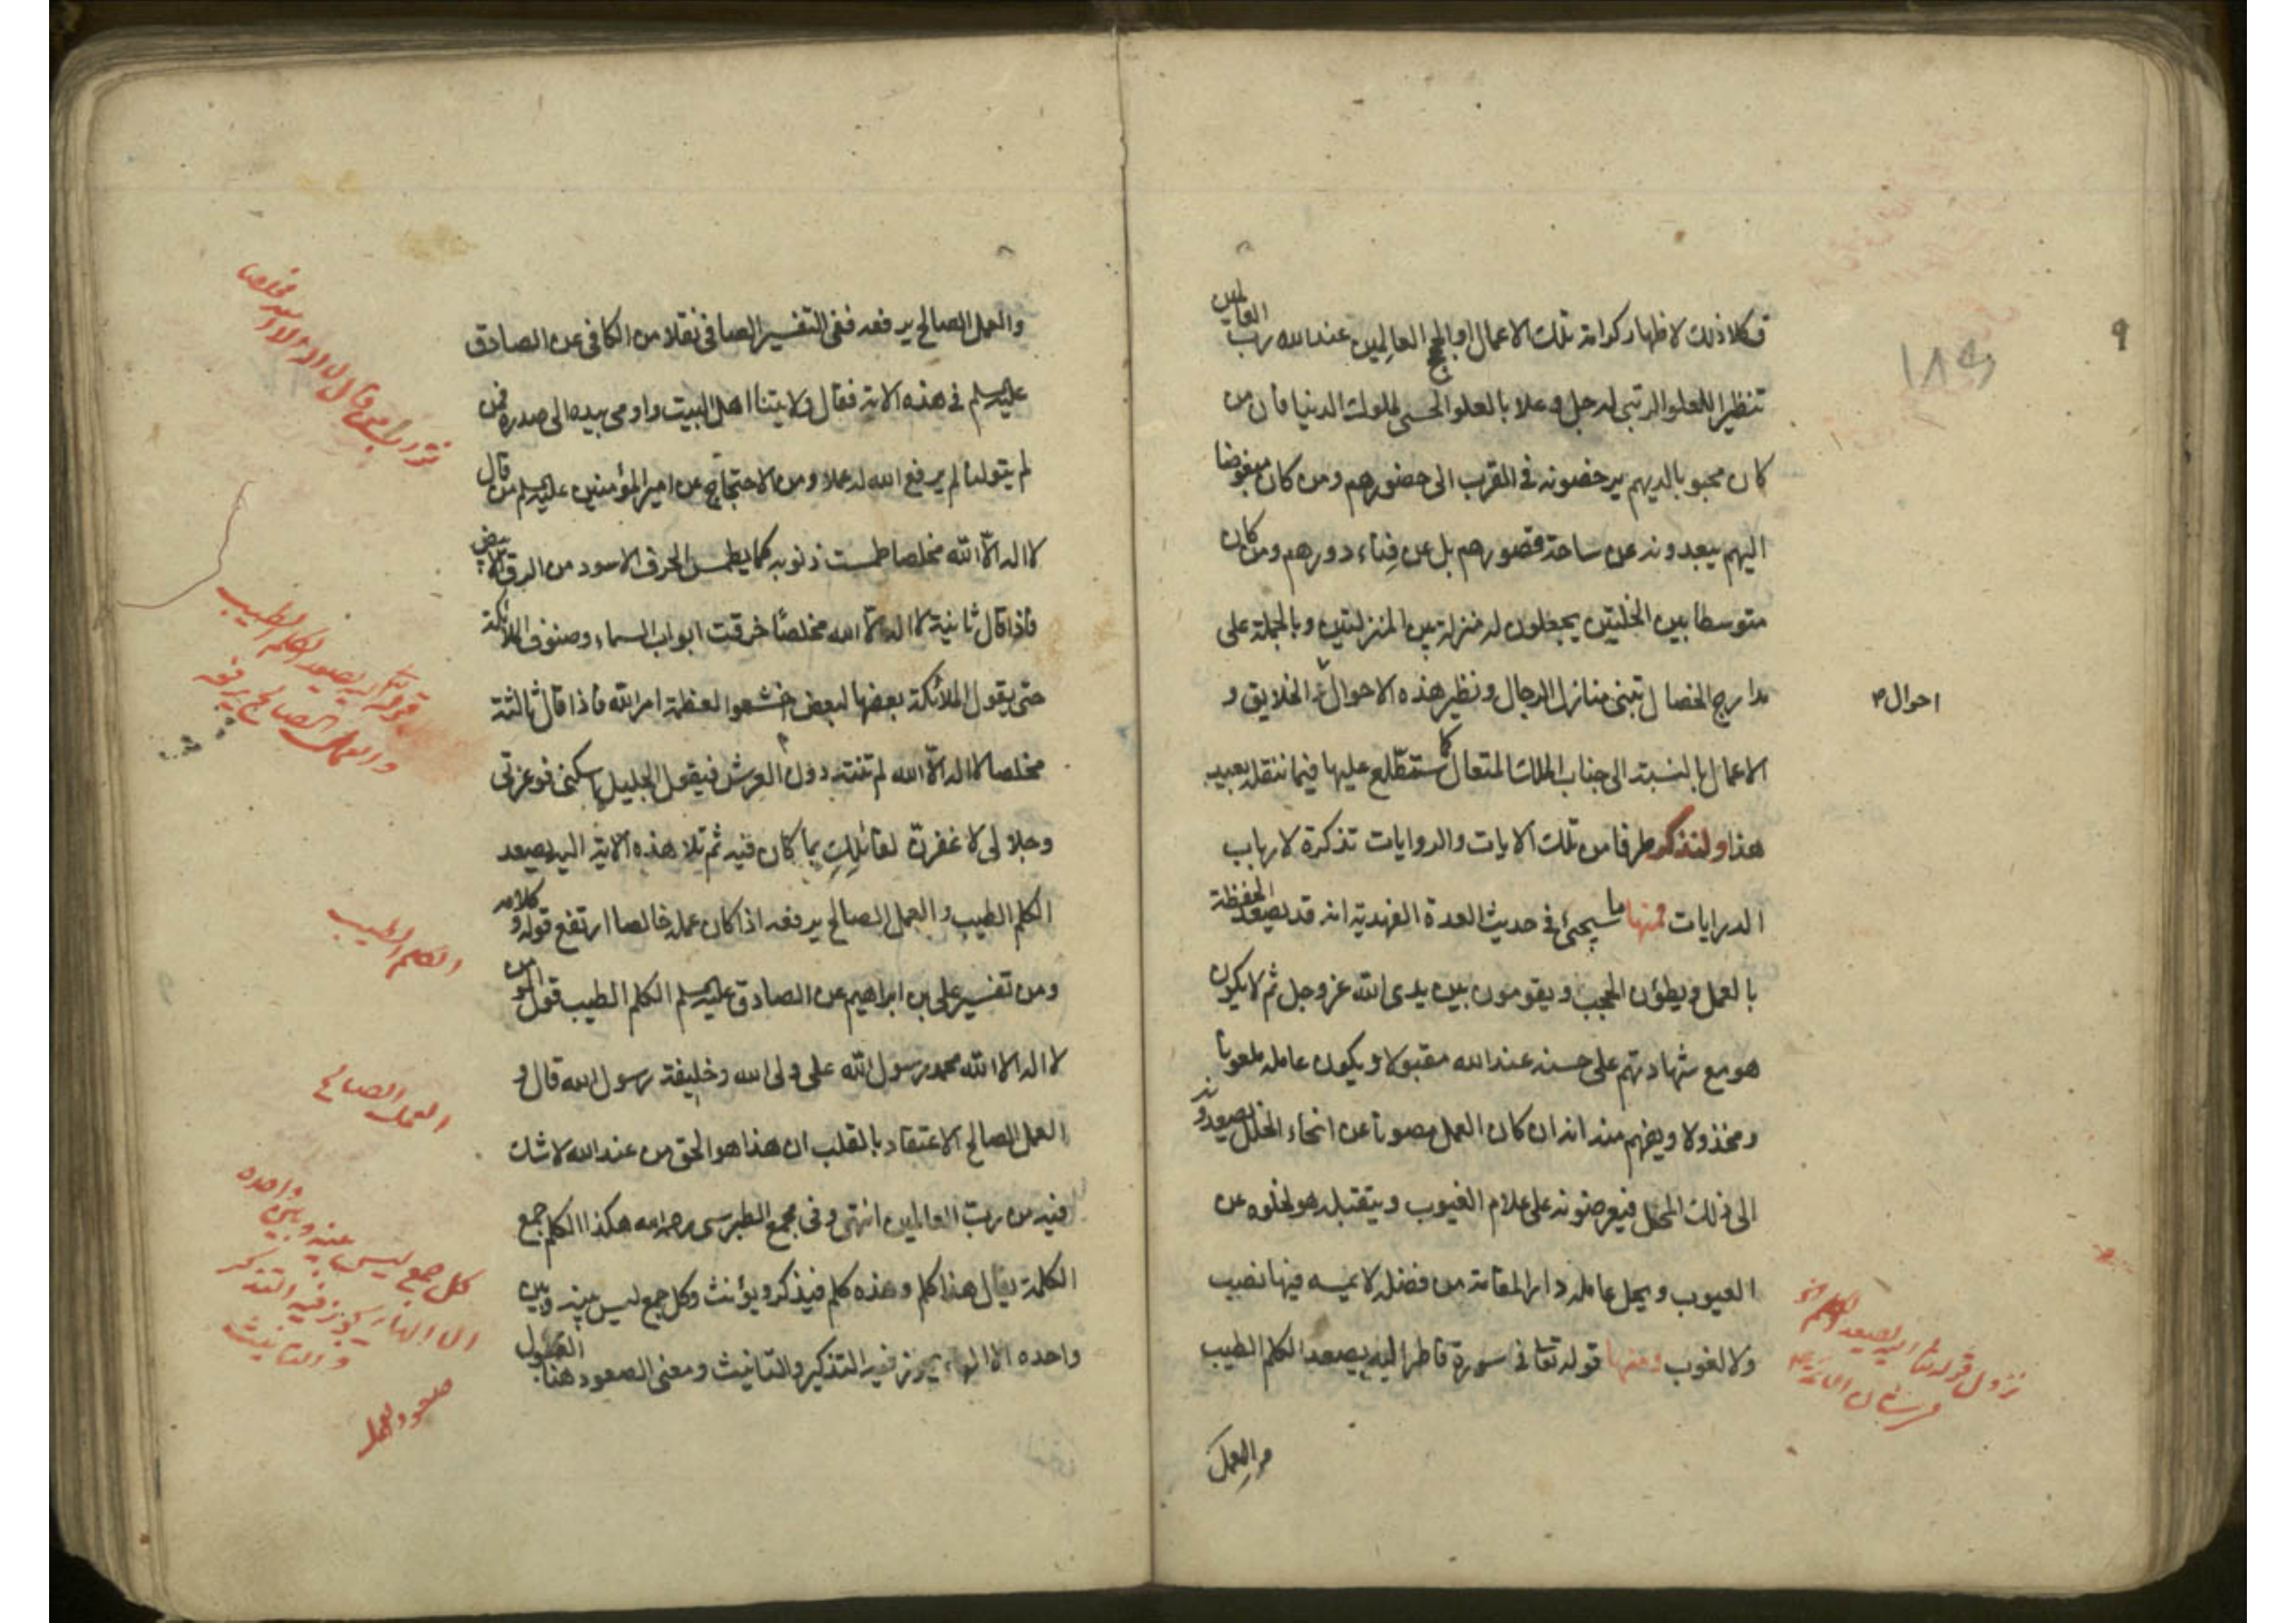 وكلا ذلك لاظهار كرامة تلك الاعمال او العالمين عند الله رب العالمين
تنظيرا للعلو الرتبى له جل وعلا بالعلو الحسى لملوك الدنيا فان من
كان محبوبا لديهم يرخصونه فى القرب الى حضورهم ومن كان مبغوضا
اليهم يبعدونه عن ساحة قصورهم بل عن فناء دورهم ومن كان
متوسطا بين الخلتين يجعلون له منزلة بين المنزلتين وبالجملة على
مدارج الخصال تبنى منازل الرجال ونظير هذه الاحوال الخلايق و
احوال
الاعمال بالنسبة الى جناب الملك المتعال كما ستطّلع عليها فيما ننقله بعيد
هذا ولنذكر طرفا من تلك الايات والروايات تذكرة لارباب
الدرايات فمنها ما سيجئ فى حديث العدة الفهدية انه قد يصعد الحفظة
بالعمل ويطؤن الحجب ويقومون بين يدى الله عز وجل ثم لا يكون
هو مع شهادتهم على حسنه عند الله مقبولا ويكون عامله ملعونا
ومخذولا ويفهم منه انه ان كان العمل مصونا عن انحاء الخلل يصعدونه
الى ذلك المحل فيعرضونه على علام الغيوب ويتقبله هو لخلوه عن
العيوب ويحل عامله دار المقامة من فضله لا يمسه فيها نصب
ولا لغوب ومنها قوله تعا فى سورة فاطر اليه يصعد الكلم الطيب
والعمل
والعمل الصالح يرفعه ففى التفسير الصافى نقلا من الكافى عن الصادق
عليه السلم فى هذه الاية فقال ولايتنا اهل البيت واومى بيده الى صدره فمن
لم يتولنا لم يرفع الله له عملا ومن الاحتجاج عن امير المؤمنين عليه السلم من قال
لا اله الّا الله مخلصا طمست ذنوبه كما يطمس الحرف الاسود من الرق الابيض
فاذا قال ثانية لا اله الّا الله مخلصًا خرقت ابواب السماء وصنوف الملائكة
حتى يقول الملائكة بعضها لبعض اخشعوا لعظمة امر الله فاذا قال ثالثة
مخلصا لا اله الّا الله لم تنته دون العرش فيقول الجليل اسكنى فوعزتى
وجلالى لاغفرن لقائلك بما كان فيه ثم تلا هذه الاية اليه يصعد
الكلم الطيب والعمل الصالح يرفعه اذا كان عمله خالصا ارتفع قوله وكلامه
ومن تفسير على بن ابراهيم عن الصادق عليه السلم الكلم الطيب قول المؤمن
لا اله الا الله محمد رسول الله على ولى الله وخليفة رسول الله قال و
العمل الصالح الاعتقاد بالقلب ان هذا هو الحق من عند الله لا شك
فيه من رب العالمين انتهى وفى مجمع الطبرسى رحمه الله هكذا الكلم جمع
الكلمة يقال هذا كلم وهذه كلم فيذكر ويؤنث وكل جمع ليس بينه وبين
واحده الا الهاء يجوز فيه التذكير والتانيث ومعنى الصعود هنا القبول
قوله تعا اليه يصعد الكلم الطيب
والعمل الصالح يرفعه
الكلم الطيب
العمل الصالح
كل جمع ليس بينه وبين واحده
الا الهاء يجوز فيه التذكير
والتانيث
صعود العمل